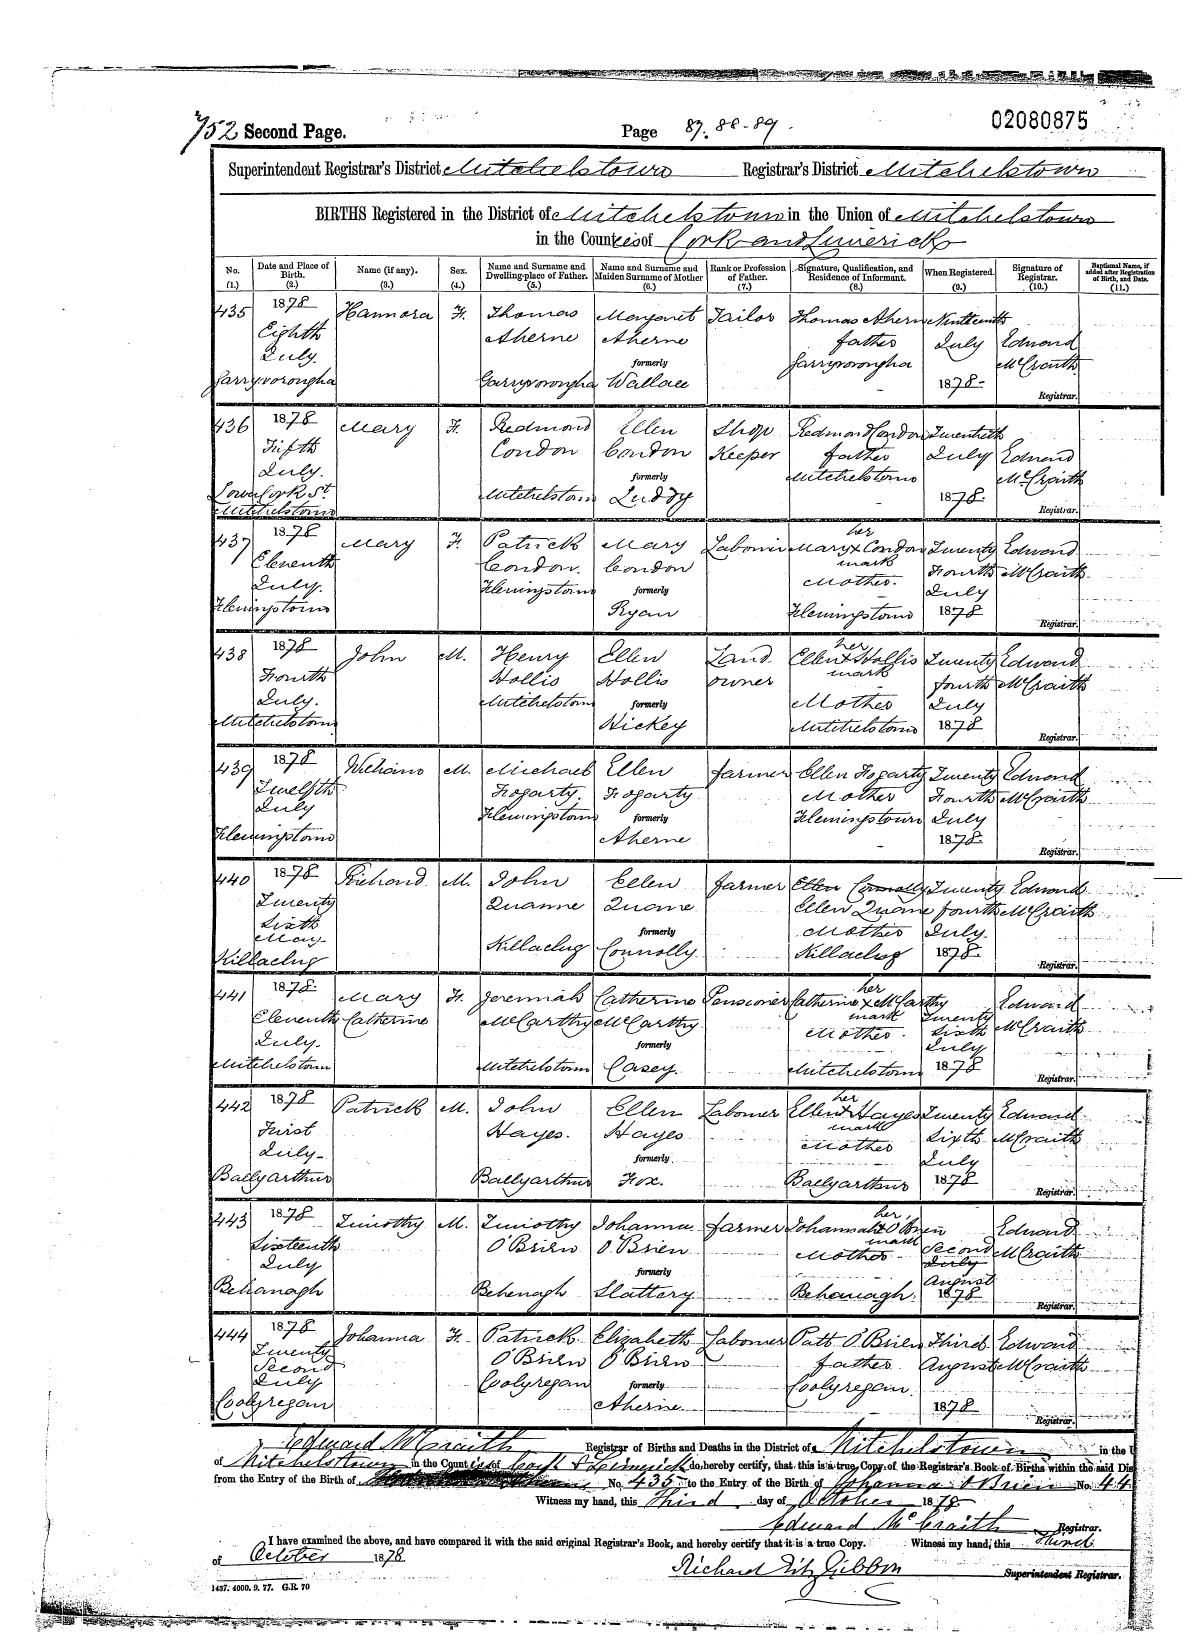 752 Second Page. Page 87. 88-89. 02080875
Superintendent Registrar's District Mitchelstown Registrar's District Mitchelstown
BIRTHS Registered in the District of Mitchelstown in the Union of Mitchelstown
in the Counties of Cork and Limerick
No. (1.) Date and Place of Birth. (2.) Name (if any). (3.) Sex. (4.) Name and Surname and Dwelling-place of Father. (5.) Name and Surname and Maiden Surname of Mother (6.) Rank or Profession of Father. (7.) Signature, Qualification, and Residence of Informant. (8.) When Registered. (9.) Signature of Registrar. (10.) Baptismal Name, if added after Registration of Birth, and Date. (11.)
435 1878 Eighth July. Garryvorongha Hannora F. Thomas Aherne Garryvorongha Margaret Aherne formerly Wallace Tailor Thomas Ahern father Garryvorongha Ninteenth July 1878 Edmond McCraith Registrar.
436 1878 Fifth July. Lower Cork St. Mitchelstown Mary F. Redmond Condon Mitchelstown Ellen Condon formerly Luddy Shop Keeper Redmond Condon father Mitchelstown Twentieth July 1878. Edmond McCraith Registrar.
437 1878 Eleventh July. Flemingstown Mary F. Patrick Condon. Flemingstown Mary Condon formerly Ryan Labourer Mary x Condon her mark Mother. Flemingstown Twenty Fourth July 1878 Edward McCraith Registrar.
438 1878 Fourth July. Mitchelstown John M. Henry Hollis Mitchelstown Ellen Hollis formerly Hickey Land owner Ellen x Hollis her mark Mother Mitchelstown Twenty fourth July 1878 Edward McCraith Registrar.
439 1878 Twelfth July Flemingstown William M. Michael Fogarty. Flemingstown Ellen Fogarty formerly Aherne farmer Ellen Fogarty Mother Flemingstown Twenty Fourth July 1878. Edmond McCraith Registrar.
440 1878 Twenty Sixth May. Killaclug Richard M. John Quanne Killaclug Ellen Quane formerly Connolly farmer Ellen Connolly Ellen Quane Mother Killaclug Twenty fourth July. 1878. Edmond McCraith Registrar.
441 1878. Eleventh July. Mitchelstown Mary Catherine F. Jeremiah McCarthy Mitchelstown Catherine McCarthy formerly Casey. Pensioner Catherine x McCarthy her mark Mother. Mitchelstown Twenty Sixth July 1878 Edward McCraith Registrar.
442 1878 First July- Ballyarthur Patrick M. John Hayes. Ballyarthur Ellen Hayes formerly Fox. Labourer Ellen x Hayes her mark Mother Ballyarthur Twenty Sixth July 1878 Edward McCraith Registrar.
443 1878 Sixteenth July Behanagh Timothy M. Timothy O'Brien Behenagh Johanna O'Brien formerly Slattery farmer Johannah x O'Brien her mark Mother Behanagh. Second July August 1878 Edward McCraith Registrar.
444 1878 Twenty Second July Coolyregan Johanna F. Patrick O'Brien Coolyregan Elizabeth O'Brien formerly Aherne Labourer Patt O'Brien father Coolyregan. Third August 1878 Edward McCraith Registrar.
Edward McCraith Registrar of Births and Deaths in the District of Mitchelstown in the U
of Mitchelstown in the Counties of Cork & Limerick do hereby certify, that this is a true Copy of the Registrar's Book of Births within the said Dis
from the Entry of the Birth of No. 435 to the Entry of the Birth of Johanna O'Brien No. 44
Witness my hand, this Third day of October 1878
Edward McCraith Registrar.
I have examined the above, and have compared it with the said original Registrar's Book, and hereby certify that it is a true Copy. Witness my hand, this Third
of October 1878
Richard Fitz Gibbon Superintendent Registrar.
1437. 4000. 9. 77. G.R. 70